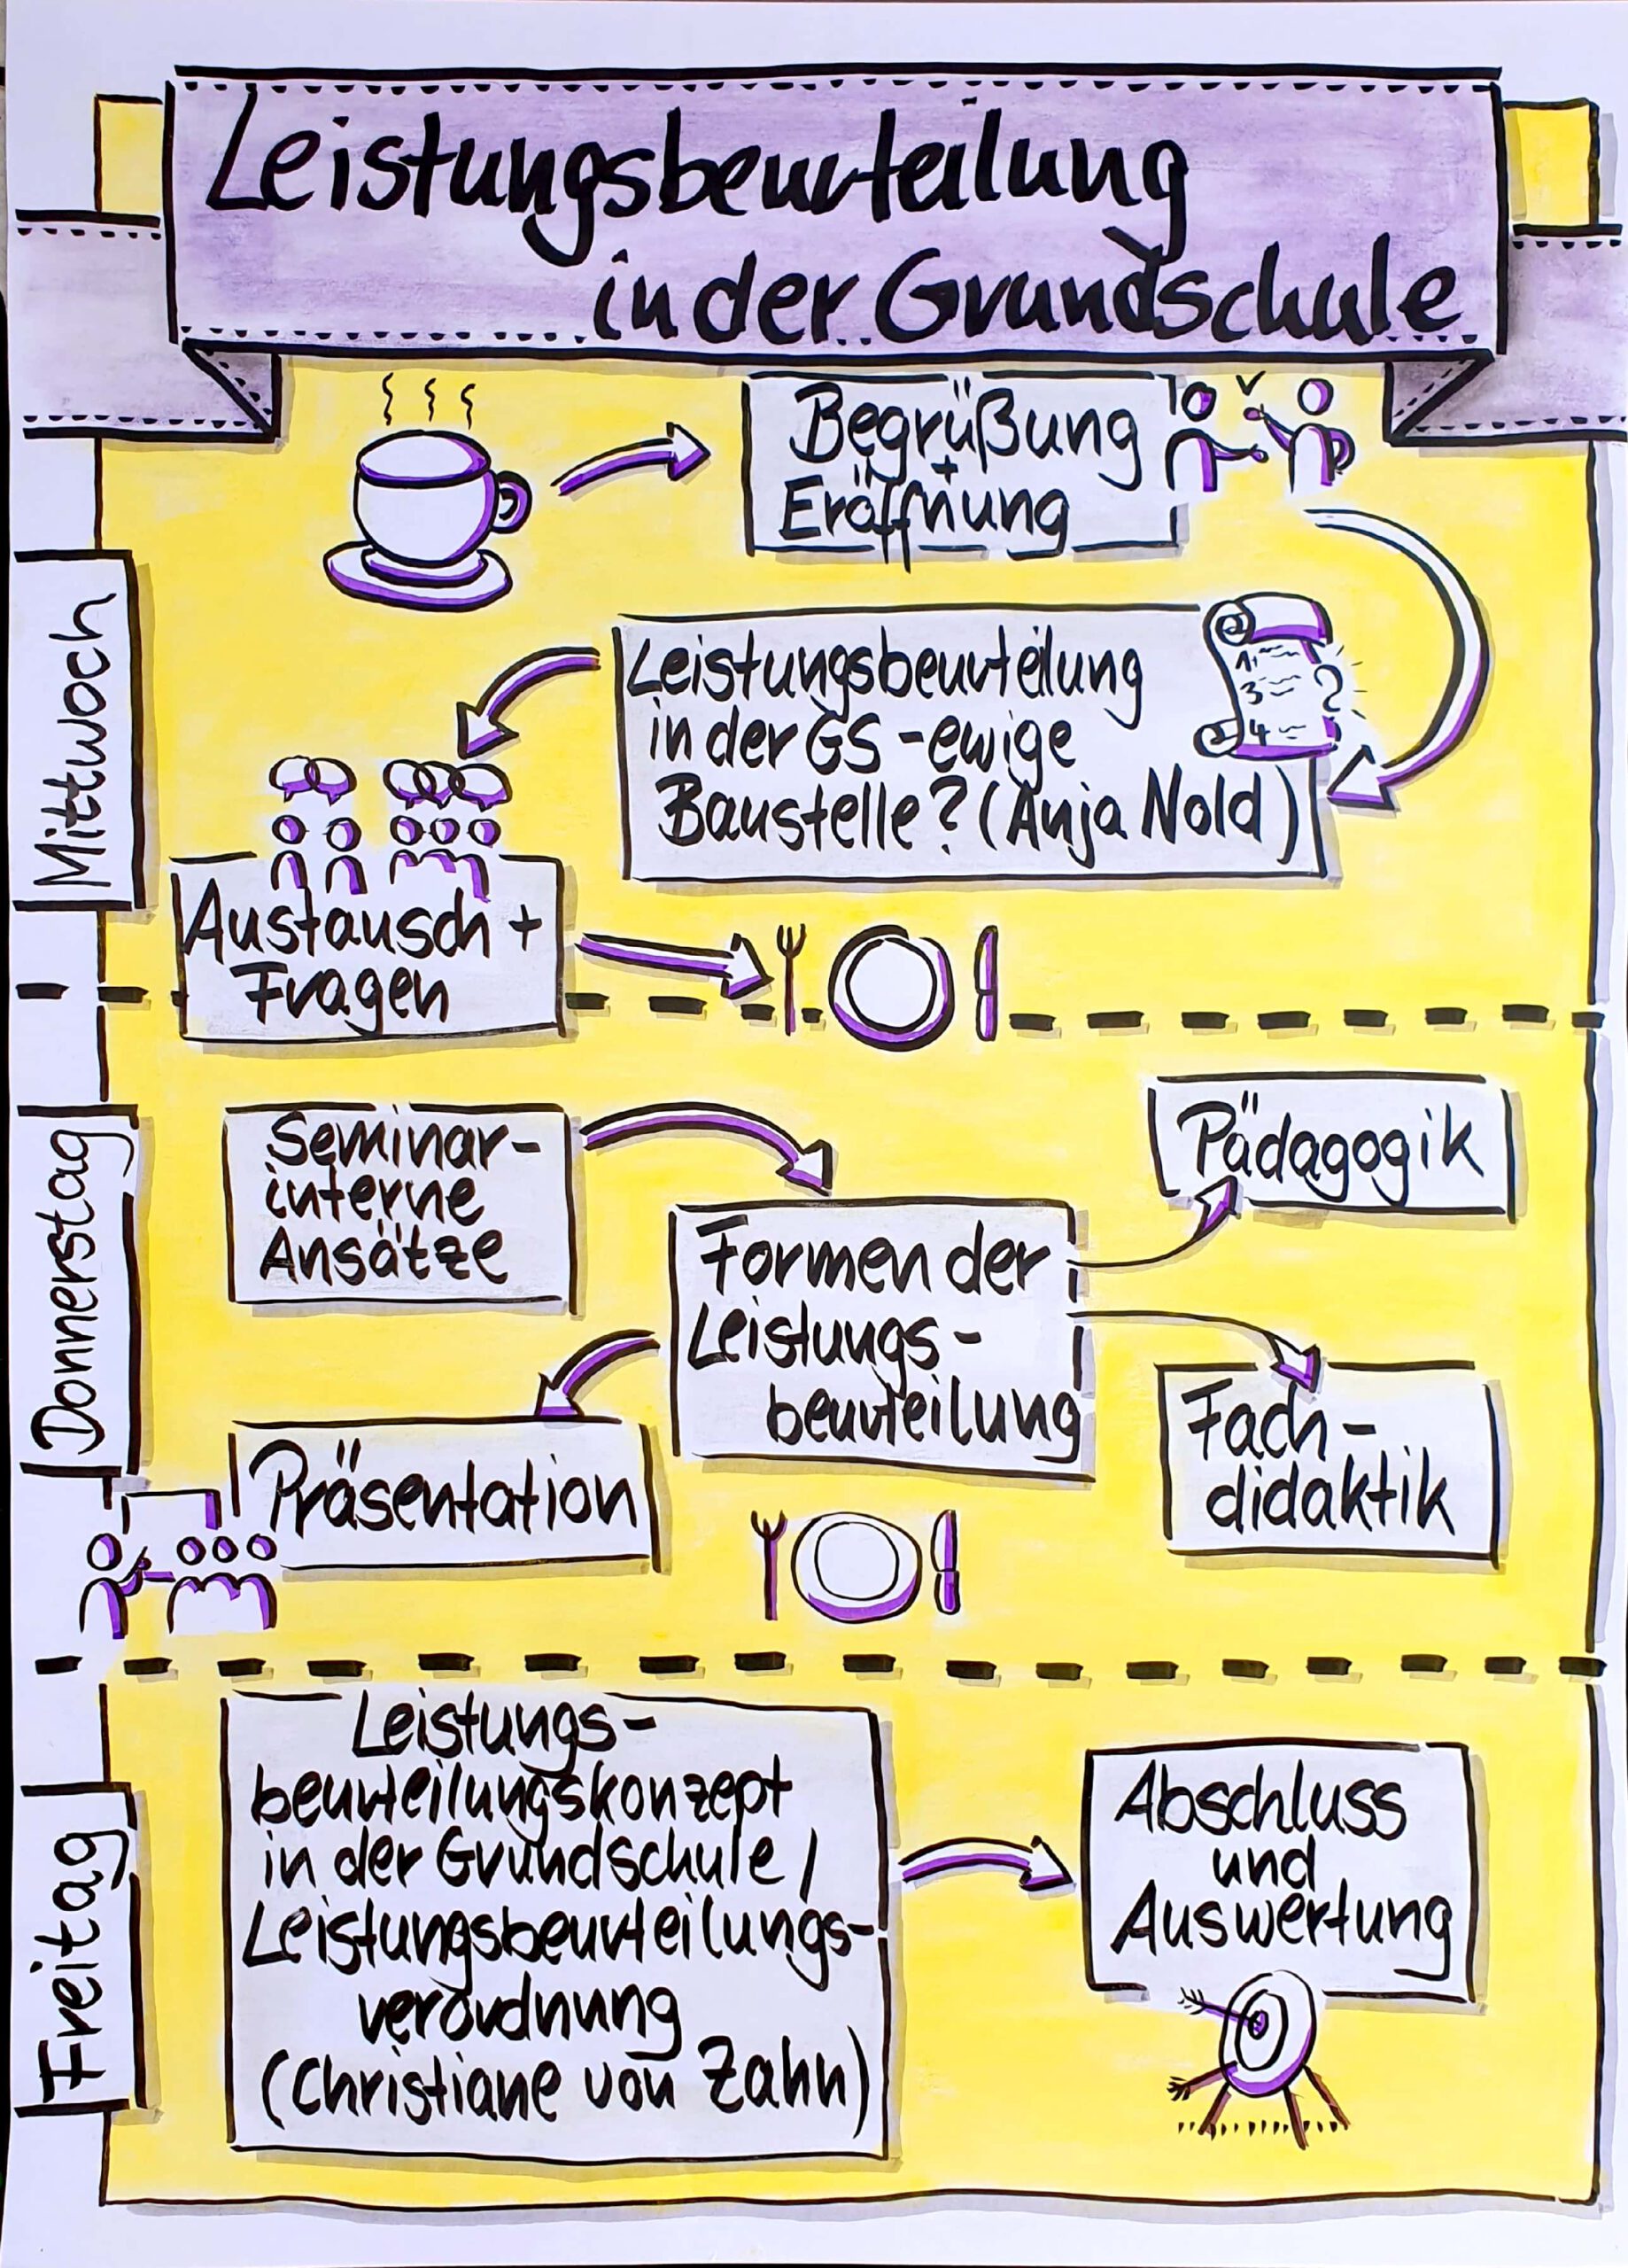 Leistungsbeurteilung
in der Grundschule
Mittwoch
Begrüßung
+
Eröffnung
Leistungsbeurteilung
in der GS - ewige
Baustelle? (Anja Nold)
1.
3
4
?
Austausch +
Fragen
Donnerstag
Seminar-
interne
Ansätze
Formen der
Leistungs-
beurteilung
Pädagogik
Fach-
didaktik
Präsentation
Freitag
Leistungs-
beurteilungskonzept
in der Grundschule /
Leistungsbeurteilungs-
verordnung
(Christiane von Zahn)
Abschluss
und
Auswertung